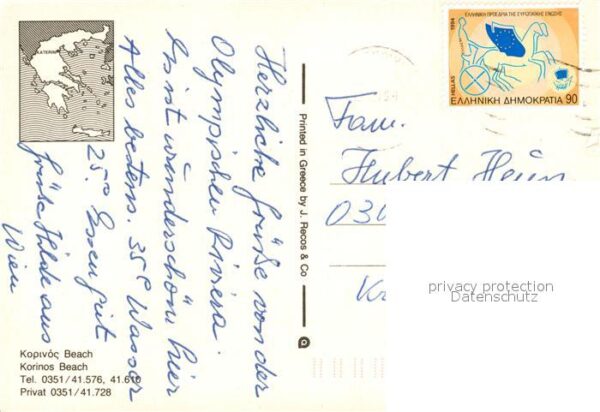 KATERINI
Herzliche Grüße von der
Olympischen Riviera.
Es ist wunderschön hier
Alles bestens. 35° Wasser
25° Essen gut
Grüße Hilde aus
Wien
Κορινός Beach
Korinos Beach
Tel. 0351/41.576, 41.616
Privat 0351/41.728
Printed in Greece by J. Recos & Co
ΕΛΛΗΝΙΚΗ ΠΡΟΕΔΡΙΑ ΤΗΣ ΕΥΡΩΠΑΪΚΗΣ ΕΝΩΣΗΣ
1994
HELLAS
ΕΛΛΗΝΙΚΗ ΔΗΜΟΚΡΑΤΙΑ 90
Fam.
Hubert
030
privacy protection
Datenschutz